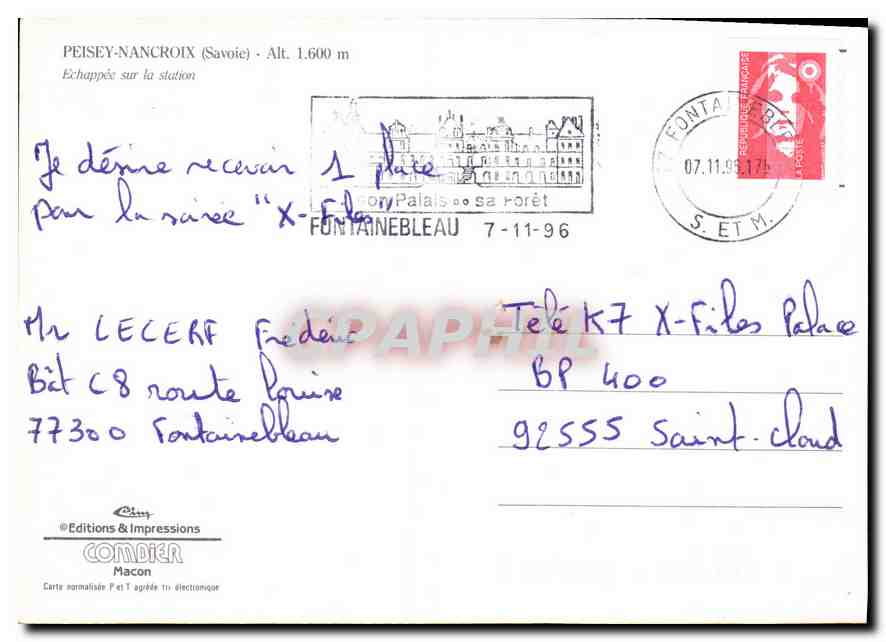 PEISEY-NANCROIX (Savoie) - Alt. 1.600 m
Echappée sur la station
RÉPUBLIQUE FRANÇAISE
LA POSTE
77 FONTAINEBLEAU
07.11.96.17h
S. ET M.
son Palais sa Forêt
FONTAINEBLEAU 7-11-96
Je désire recevoir 1 place
pour la soirée "X-Files"
Mr LECERF Frédéric
Bât C8 route louise
77300 Fontainebleau
Télé K7 X-Files Palace
BP 400
92555 Saint-Cloud
CPAPHIL
Cim
©Editions & Impressions
COMBIER
Macon
Carte normalisée P et T agréée tri électronique